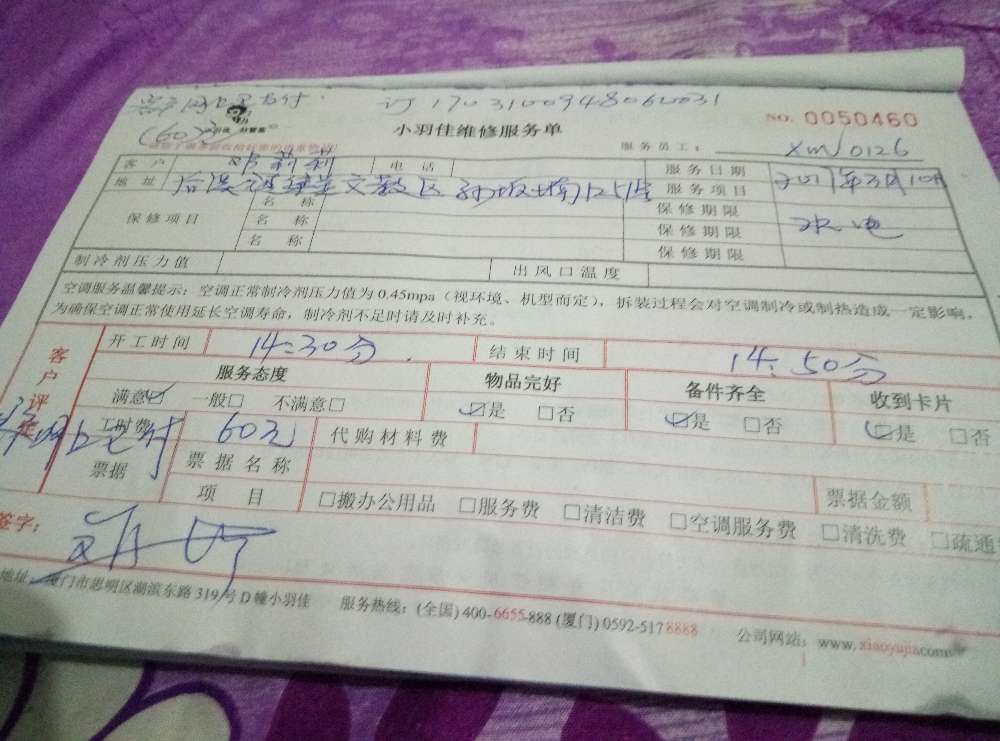 订 1703100948060031
(60元)
NO. 0050460
小羽佳维修服务单
服务员工: XM/0126
客户 莉莉 电话 服务日期 2017年3月10日
地址 文教区 服务项目 水电
保修项目 名称 保修期限
名称 保修期限
名称 保修期限
制冷剂压力值 出风口温度
空调服务温馨提示: 空调正常制冷剂压力值为0.45mpa(视环境、机型而定),拆装过程会对空调制冷或制热造成一定影响,
为确保空调正常使用延长空调寿命,制冷剂不足时请及时补充。
客户评
开工时间 14:30分. 结束时间 14:50分
服务态度 物品完好 备件齐全 收到卡片
满意☑ 一般□ 不满意□ ☑是 □否 ☑是 □否 ☑是 □否
工时费 60元 代购材料费
票据 票据名称
项目 □搬办公用品 □服务费 □清洁费 □空调服务费 □清洗费 □疏通 票据金额
签字:
地址: 厦门市思明区湖滨东路319号D幢小羽佳 服务热线: (全国) 400-6655-888 (厦门) 0592-5178888 公司网站: www.xiaoyujia.com